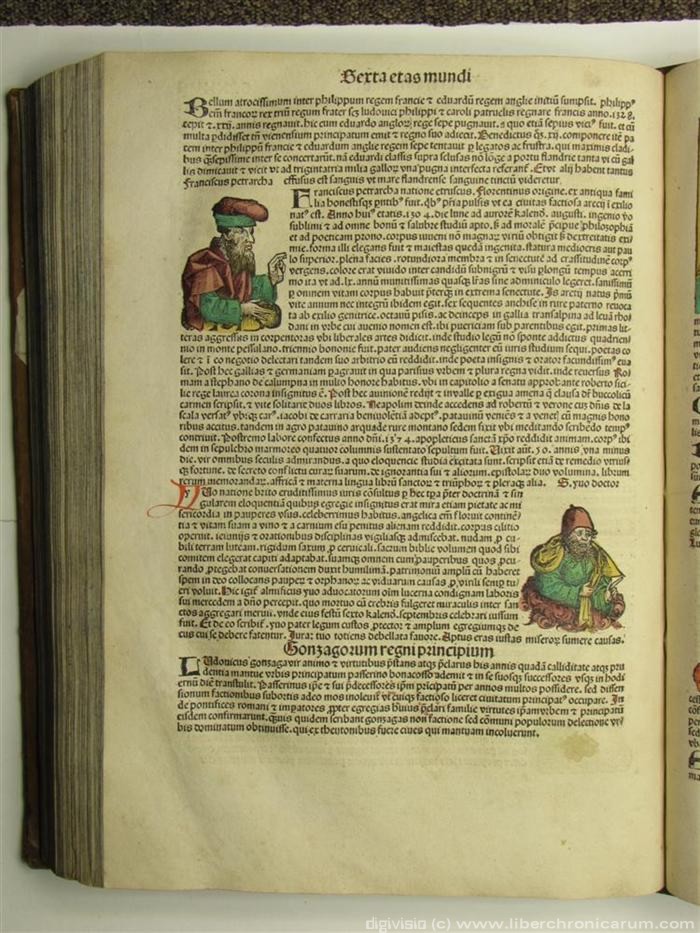 Sexta etas mundi
Bellum atrocissimum inter philippum regem francie ⁊ eduardū regem anglie initiū sumpsit. philippꝰ
em̄ francoꝝ rex triū regum frater ſcꝫ ludouici philippi ⁊ caroli patruelis regnare francis anno. 1328.
cepit ⁊ .xxij. annis regnauit. hic cum eduardo angloꝝ rege sepe pugnauit. a quo etiā sepius victꝰ fuit. et cū
multa ꝑdidisset cū viennensium principatum emit ⁊ regno suo adiecit. Benedictus qͦꝫ .xij. componere itē pa
tem inter philippū francie ⁊ eduardum anglie regem sepe tentauit ꝑ legatos ac frustra. qui maximis cladi
bus q̄ꝫsepissime inter se concertarūt. nā eduardi classis supra selusas nō lōge a portu flandrie tanta vi cū gal
lis dimicauit ⁊ vicit vt ad trigintatria milia galloꝝ vna pugna interfecta referant᷑. Et vt alij habent tantus
Franciscus petrarcha effusus est sanguis vt mare flandrense sanguine tinctū videretur.
Franciscus petrarcha natione etruscus. Florentinus origine. ex antiqua fami
lia honestisqꝫ pntibꝰ fuit. qͥbꝰ pria pulsis vt ea ciuitas factiosa arecij ī exilio
natꝰ est. Anno huiꝰ etatis .1304. die lune ad auroꝛē kalend. augusti. ingenio vo
sublimi ⁊ ad omne bonū ⁊ salubꝛe studiū apto. sꝫ ad morale p̄cipue philosophiā
et ad poeticam prono. corpus iuueni nō magnaꝝ viriū obtigit sꝫ dexteritatis exi
mie. forma illi elegans fuit ⁊ maiestas quedā ingenita. statura mediocris aut pau
lo superior. plena facies. rotundiora membra ⁊ in senectute ad crassitudinē corpꝰ
vergens. coloꝛe erat viuido inter candidū subnigrū ⁊ visu ꝑlongū tempus acerri
mo ita vt ad .lx. annū munitissimas quasqꝫ lr̄as sine adminiculo legeret. sanissimū
ꝑ omnem vitam corpus habuit p̄terqͣꝫ in extrema senectute. Is aretij natus pͥmū
vite annum nec integrū ibidem egit. sex sequentes anchise in rure paterno reuoca
ta ab exilio genitrice. octauū pisis. ac deinceps in gallia transalpina ad leuā rhoi
dani in vꝛbe cui auenio nomen est. ibi puericiam sub parentibus egit. primas lit⸗
teras aggressus in corpentoras vbi liberales artes didicit. inde studio legū nō sponte addictus quadrien
nio in monte pessulano. triennio bononie fuit. pater audiens negligenter eū iuris studium sequi. poetas co
lere ⁊ ī eo negotio delectari tandem suo arbitrio eū reddidit. inde poeta insignis ⁊ orator facundissimꝰ eua
sit. Post hec gallias ⁊ germaniam ꝑagrauit in qua parisius vꝛbem ⁊ plura regna vidit. inde reuersus Ro
mam a stephano de calumpna in mulio honoꝛe habitus. vbi in capitolio a senatu approbante roberto sici⸗
lie rege laurea coꝛona insignitus ē. Post hec auinionē redijt ⁊ in valle ꝑ exigua amena q̄ clausa dꝛ buccolicū
carmen scripsit. ⁊ vite solitarie duos libros. Neapolim deinde accedens ad robertū ⁊ verone eūs dn̄is de la
scala versatꝰ vbiqꝫ carꝰ. iacobi de carraria beniuolentiā adeptꝰ. patauinū veniēs ⁊ a venetꝭ cū magnis hono
ribus accitus. tandem in agro patauino arquade rure montano sedem fixit vbi meditando scribēdo tempꝰ
contriuit. Postremo labore confectus anno dn̄i .1374. apoplecticus sanctā xp̄o reddidit animam. corpꝰ ibi
dem in sepulchro marmoreo quatuor columnis sustentato sepultum fuit. Vixit aūt .50. annis. vna minus
die. vir omnibus seculis admirandus. a quo eloquencie studia excitata sunt. scripsit etiā de remedio vtriusꝰ
qꝫ fortune. de secreto conflictu curaꝝ suarum. de ignorantia sui ⁊ alioꝛum. epistolaꝝ duo volumina. librum
rerum memorandaꝝ. affricā ⁊ materna lingua librū sanctoꝝ ⁊ triūphoꝝ ⁊ pleraqꝫ alia. S. yuo doctor
YUo natione brito eruditissimus iuris cōsultus ꝑ hec tꝑa p̄ter doctrinā ⁊ sin
gularem eloquentiā quibus egregie insignitus erat mira etiam pietate ac mi
sericordia in pauperes vsus. celeberrimus habitus. angelica em̄ floruit continētia
tia ⁊ vitam suam a vino ⁊ a carnium esu penitus alienam reddidit. corpus cilitio
operuit. ieiunijs ⁊ orationibus disciplinas vigiliasqꝫ admiscebat. nudam ꝑ cu⸗
bili terram luteam. rigidum saxum ꝑ ceruicali. sacrum biblie volumen quod sibi
comitem elegerat capiti adaptabat. suamqꝫ omnem cum pauperibus quos ꝑcu⸗
rando ꝓtegebat conuersationem duxit humilimā. patrimoniū amplū eū haberet
spem in deo collocans pauperꝝ ⁊ orphanoꝝ ac viduarum causas ꝓ virili semꝑ tu⸗
eri voluit. Hic igit᷑ almificus yuo aduocatorum olim lucerna condignam laboris
sui mercedem a dn̄o percepit. quo mortuo cū crebris fulgeret miraculis inter san
ctos aggregari meruit. vnde eius festū sexto kalend. septembris celebrari iussum
fuit. Et de eo scribit᷑. yuo pater legum custos. ꝓtector ⁊ amplum egregiumqꝫ de
cus cui se debere fatentur. Iura: tuo totiens debellata fauore. Aptus eras iustas miseroꝝ sumere causas.
Gonzagorum regni principium
LUdouicus gonzaga vir animo ⁊ virtutibus p̄stans atqꝫ p̄clarus his annis quadā calliditate atqꝫ pru
dentia mantue vrbis principatum passerino bonacosso ademit ⁊ in se suosqꝫ successores vsqꝫ in hodi
ernū diē transtulit. Passerinus ip̄e ⁊ sui p̄decessores ip̄m p̄ncipatū per annos multos possidere. sed dissen
sionum factionibus subortis adeo mos inoleuit vt cuiqꝫ factioso liceret ciuitatum principatꝰ occupare. In
de pontifices romani ⁊ imꝑatores ꝓpter egregias huius p̄clari familie virtutes ip̄am vꝛbem ⁊ principatū
eisdem confirmarunt. qͣꝫuis quidem scribant gonzagas non factione sed cōmuni populorum delectione vꝛ⸗
bis dominatum obtinuisse. qui ex theutonibus fuere ciues qui mantuam incoluerunt.
digivisio (c) www.liberchronicarum.com